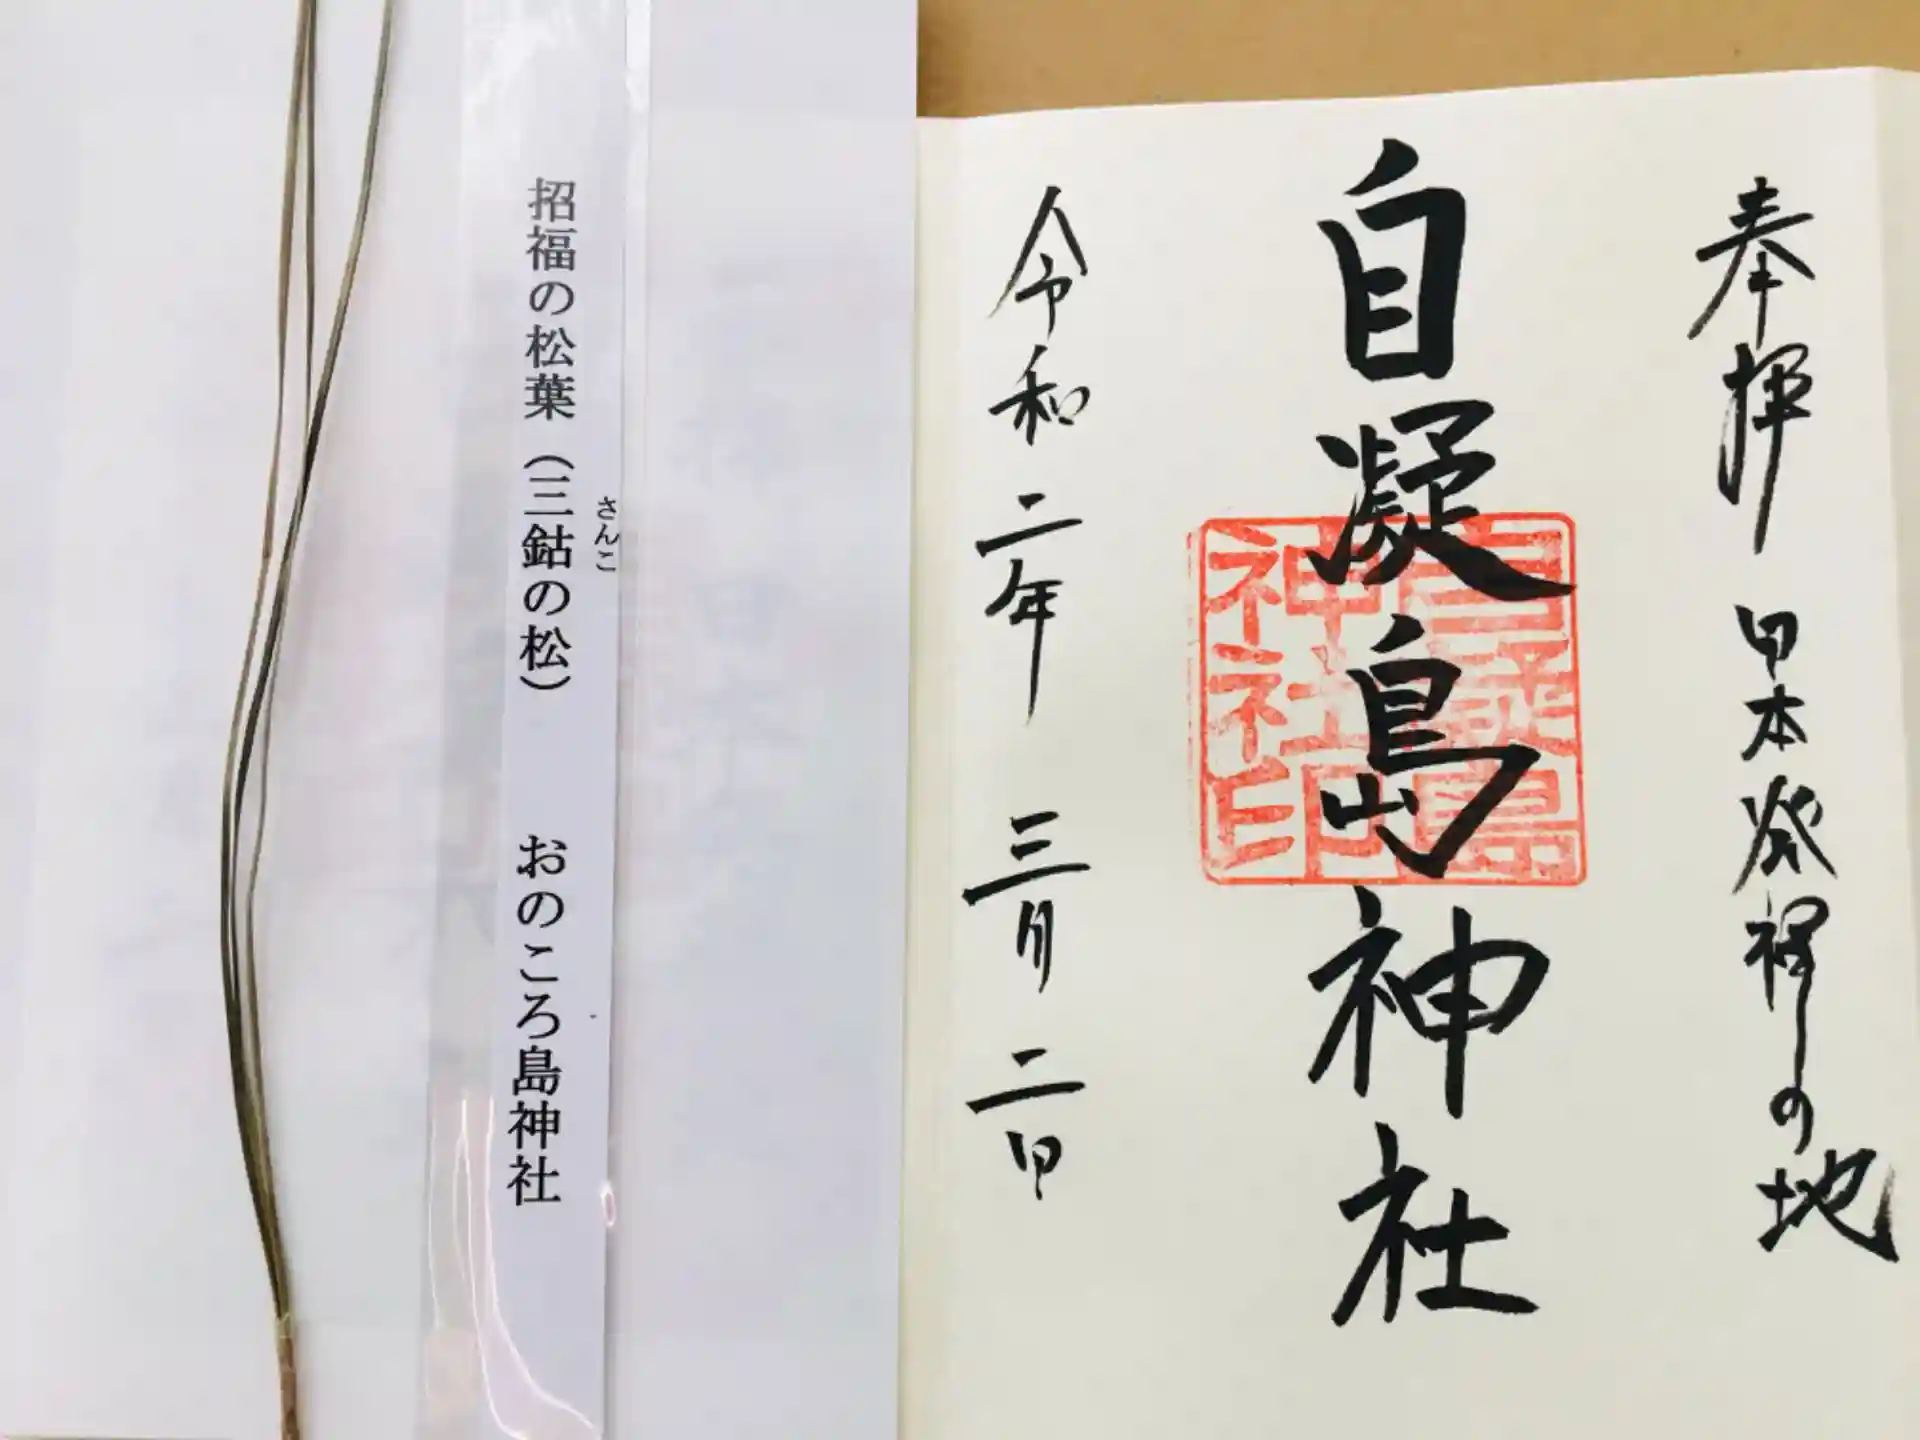 奉拝　日本発祥の地
自凝島神社
自凝島
神社印
令和二年　三月　二日
さんこ
招福の松葉（三鈷の松）　おのころ島神社